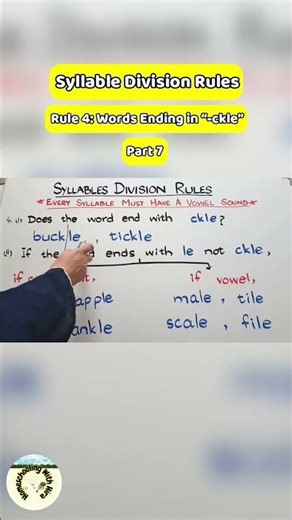 Syllable Division Rules
Rule 4: Words Ending in "-ckle"
Part 7
SYLLABLES DIVISION RULES
*EVERY SYLLABLE MUST HAVE A VOWEL SOUND*
Does the word end with ckle?
buck/le, tickle
If the ends with le not ckle,
if if vowel,
apple male, tile
ankle scale, file
Homeschooling With Hira